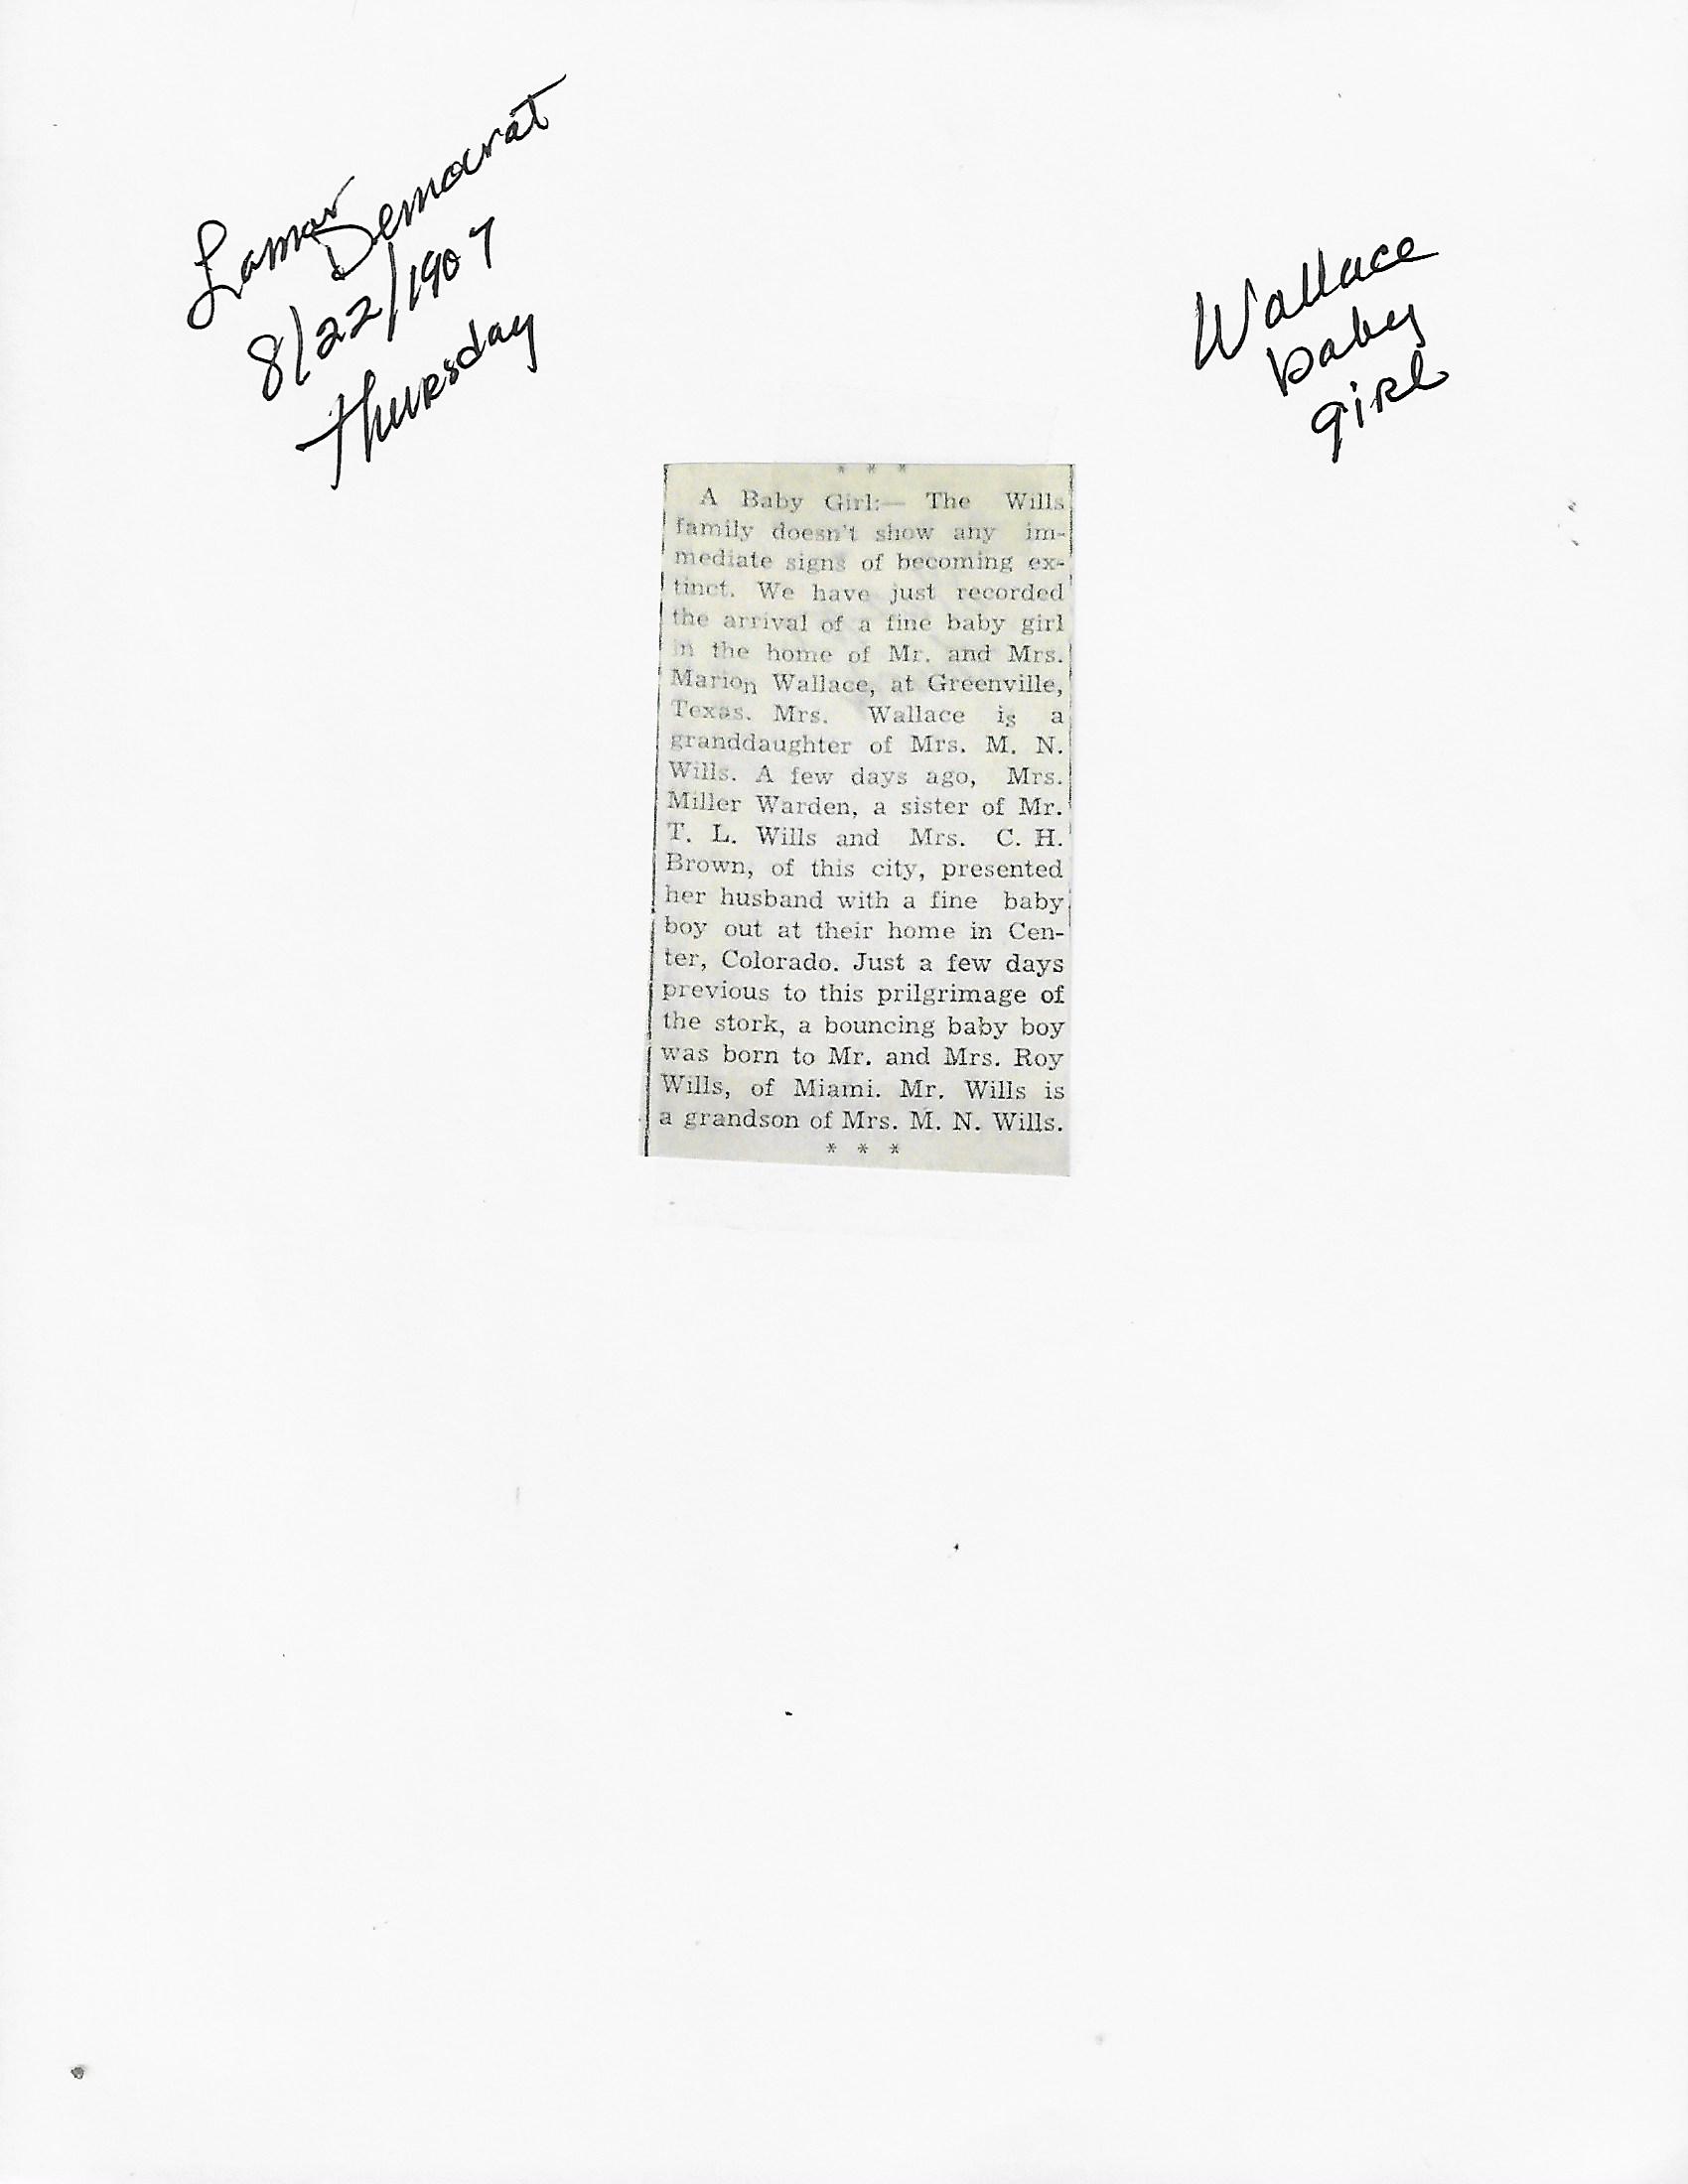 Lamar Democrat
8/22/1907
Thursday
Wallace
baby
girl
* * *
A Baby Girl:— The Wills
family doesn't show any im-
mediate signs of becoming ex-
tinct. We have just recorded
the arrival of a fine baby girl
in the home of Mr. and Mrs.
Marion Wallace, at Greenville,
Texas. Mrs. Wallace is a
granddaughter of Mrs. M. N.
Wills. A few days ago, Mrs.
Miller Warden, a sister of Mr.
T. L. Wills and Mrs. C. H.
Brown, of this city, presented
her husband with a fine baby
boy out at their home in Cen-
ter, Colorado. Just a few days
previous to this prilgrimage of
the stork, a bouncing baby boy
was born to Mr. and Mrs. Roy
Wills, of Miami. Mr. Wills is
a grandson of Mrs. M. N. Wills.
* * *